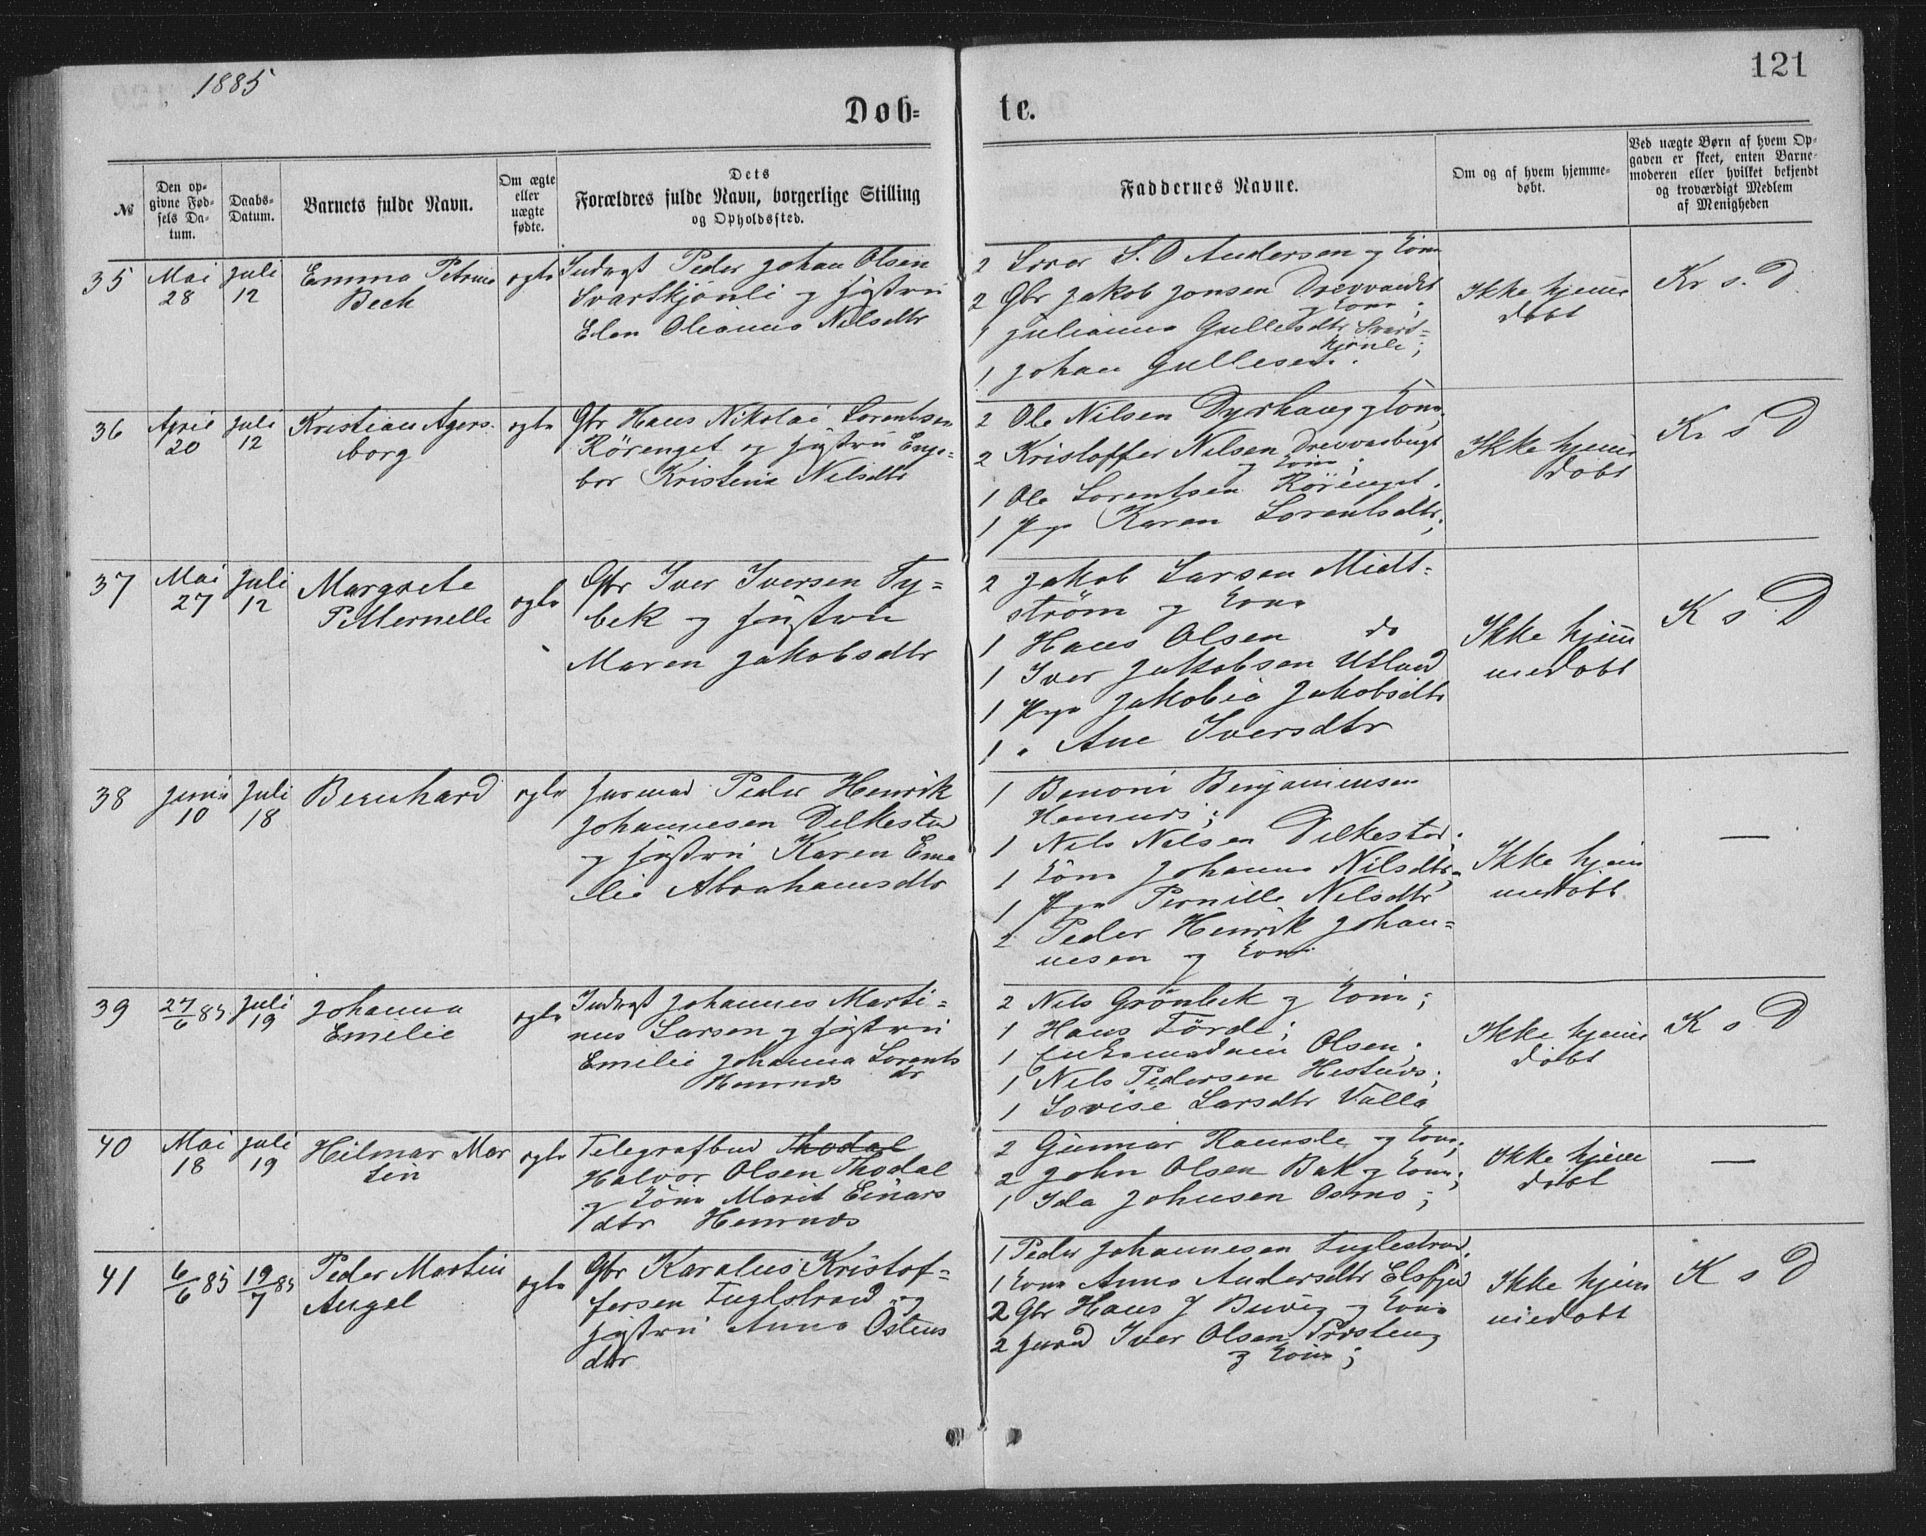 1885
121
Døb-
te.
№
Den op-
givne Fød-
sels Da-
tum.
Daabs-
Datum.
Barnets fulde Navn.
Om ægte
eller
uægte
fødte.
Dets
Forældres fulde Navn, borgerlige Stilling
og Opholdssted.
Faddernes Navne.
Om og af hvem hjemme-
døbt.
Ved uægte Børn af hvem Op-
gaven er skeet, enten Barne-
moderen eller hvilket bekjendt
og troværdigt Medlem
af Menigheden
35
Mai
28
Juli
12
Emma Petrine
Bech
ægte
Indegst Peder Johan Olsen
Svartkjönli og Hustru
Elen Olianna Nilsdtr
2 S. O Andersen og Kone
2 Gbr Jakob Jonsen Drevvandet
og Kone;
1 Julianna Gullesdtr Svart-
kjönli;
1 Johan Gullesen.
Ikke hjeme
døbt
Kr s. D.
36
April
20
Juli
12
Kristian Agers-
borg
ægte
Gbr Hans Nikolai Lorentsen
Rörenget og Hustru Enge-
bor Kristine Nilsdtr
2 Ole Nilsen Dyrhaug og Kone,
2 Kristoffer Nilsen Drevvasbugt
og Kone;
1 Ole Lorentsen Rörenget.
1 Pige Karen Lorentsdtr;
Ikke hjeme
døbt
Kr s D
37
Mai
27
Juli
12
Margrete
Petternelle
ægte
Gbr Iver Iversen Ty-
bek og Hustru
Maren Jakobsdtr
2 Jakob Larsen Midt-
ström og Kone
1 Hans Olsen do
1 Iver Jakobsen Utland
1 Pige Jakobia Jakobsdtr
1 " Ane Iversdtr
Ikke hjem
medøbt
K s. D
38
Juni
10
Juli
18
Bernhard
ægte
Jurmad Peder Henrik
Johannesen Dilkestad
og Hustru Karen Eme
lie Abrahamsdtr
1 Benoni Benjaminsen
Hemnes;
1 Nils Nilsen Dilkestad;
1 Kone Johanna Nilsdtr,
1 Pige Pernille Nilsdtr
2 Peder Henrik Johan-
nesen og Kone
Ikke hjem
medøbt
—
39
27/6 85
Juli
19
Johanna
Emelie
ægte
Indegst Johannes Marti-
nus Larsen og Hustru
Emelie Johanna Lorents
Hemnes dr
2 Nils Grönbek og Kone;
1 Hans Förde;
1 Olsen;
1 Nils Pedersen Hestnes;
1 Lovise Larsdtr Valla
Ikke hjeme
døbt
K s D
40
Mai
18
Juli
19
Hilmar Mar
tin
ægte
Telegrafbud Thodal
Halvor Olsen Thodal
og Kone Marit Einars
dtr Hemnes
2 Gunnar Ramsle og Kone;
2 John Olsen Bak og Kone;
1 Ida Johnsen Osmo;
Ikke hjeme
døbt
—
41
6/6 85
19/7 85
Peder Martin
Angel
ægte
Gbr Karalius Kristof-
fersen Fuglstrad og
Hustru Anna Ostens
dtr
1 Peder Johannesen Fuglestrad,
1 Kone Anna Andersdtr Elsfjord
2 Gbr Hans J Buvig og Kone
2 Jurad Iver Olsen Presteng
og Kone;
Ikke hjem
medøbt
K s D